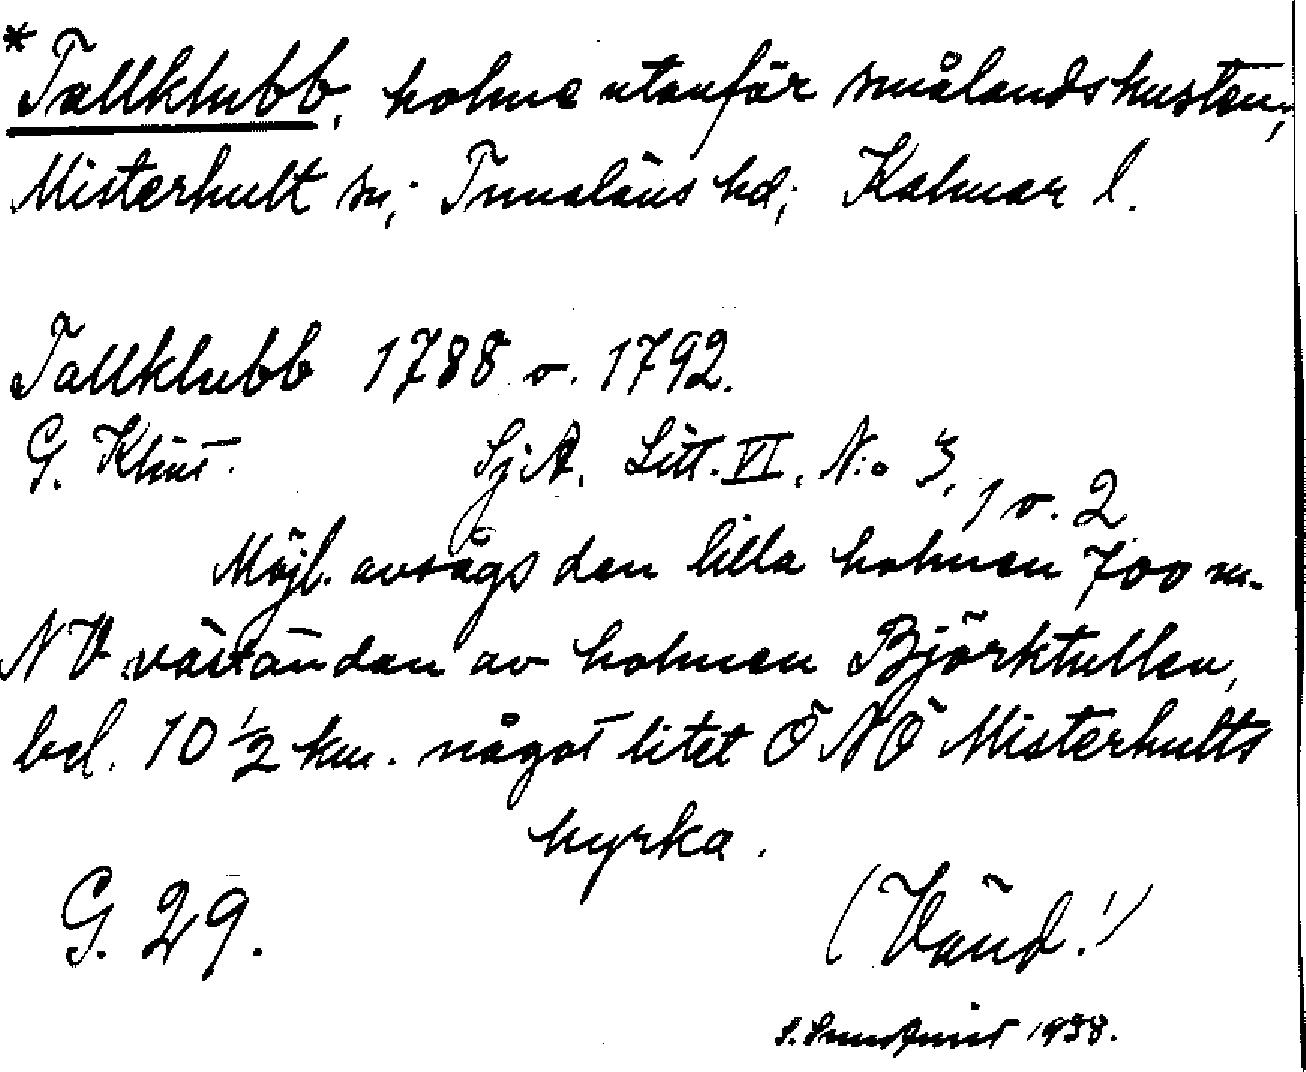 *Tallklubb, holme utanför smålandskusten;
Misterhult sn; Tunaläns hd; Kalmar l.
Tallklubb 1788 o. 1792.
G. Klint. SjA. Litt. VI. N:o 3, 1 o. 2
Möjl. avsågs den lilla holmen 700 m.
NV väständan av holmen Björktullen,
bel. 10 1/2 km. något litet ÖNÖ Misterhults
kyrka.
G. 29. (Vänd!)
1938.